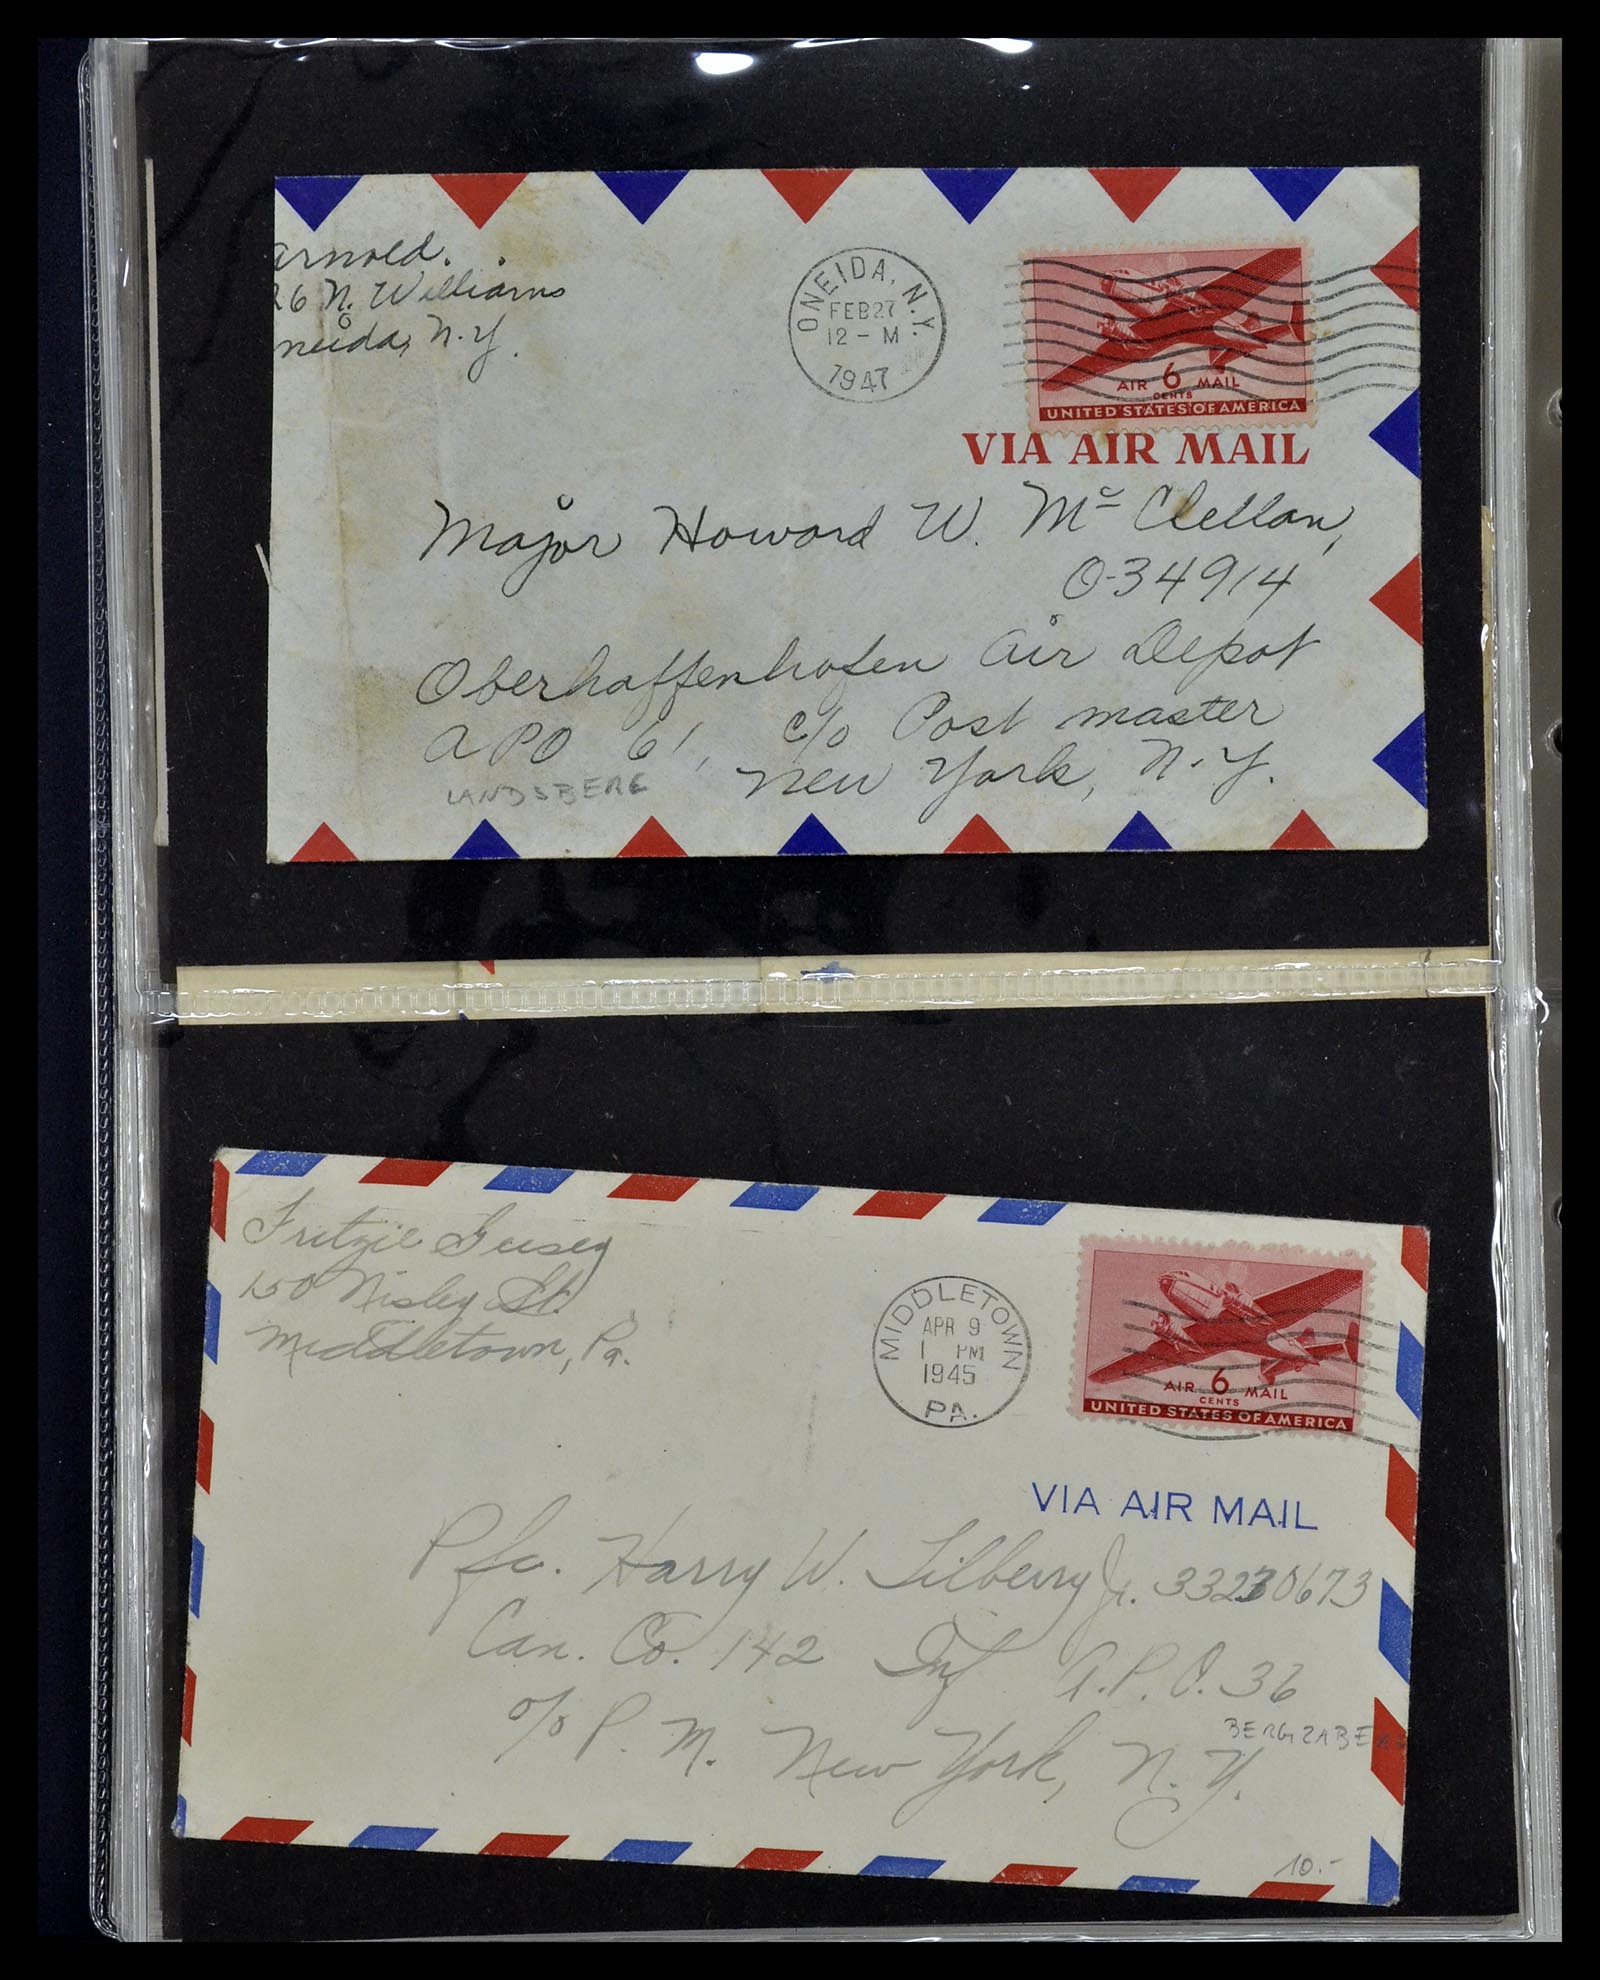 arnold.
26 N. Williams
neida, N.Y.
ONEIDA, N.Y.
FEB 27
12 - M
1947
AIR 6 MAIL
CENTS
UNITED STATES OF AMERICA
VIA AIR MAIL
Major Howard W. Mc Clellan,
O-34914
Oberhaffenhofen Air Depot
APO 61, c/o Post master
LANDSBERG
New York, N.Y.
Fritzie Geisey
150 Nisley St.
Middletown, Pa.
MIDDLETOWN
APR 9
1 PM
1945
PA.
AIR 6 MAIL
CENTS
UNITED STATES OF AMERICA
VIA AIR MAIL
Pfc. Harry W. Lilberry Jr. 33230673
Can. Co. 142 Inf A.P.O. 36
BERGZABE
c/o P. M. New York, N.Y.
10.-